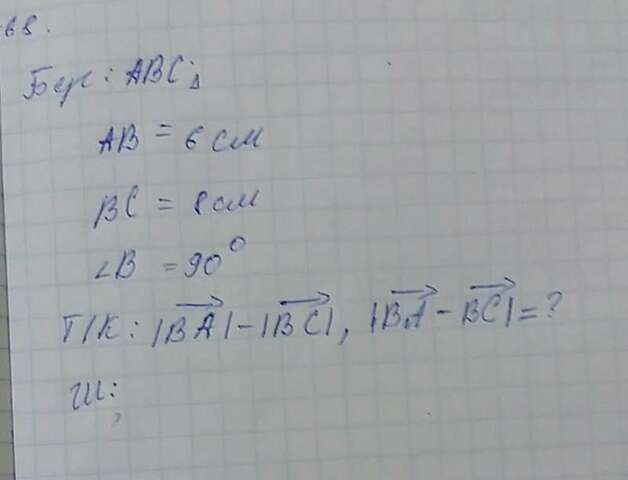 68.
Бер: ABC Δ
AB = 6 см
BC = 8 см
∠B = 90°
Т/К: |BA⃗| - |BC⃗|, |BA⃗ - BC⃗| = ?
Ш: